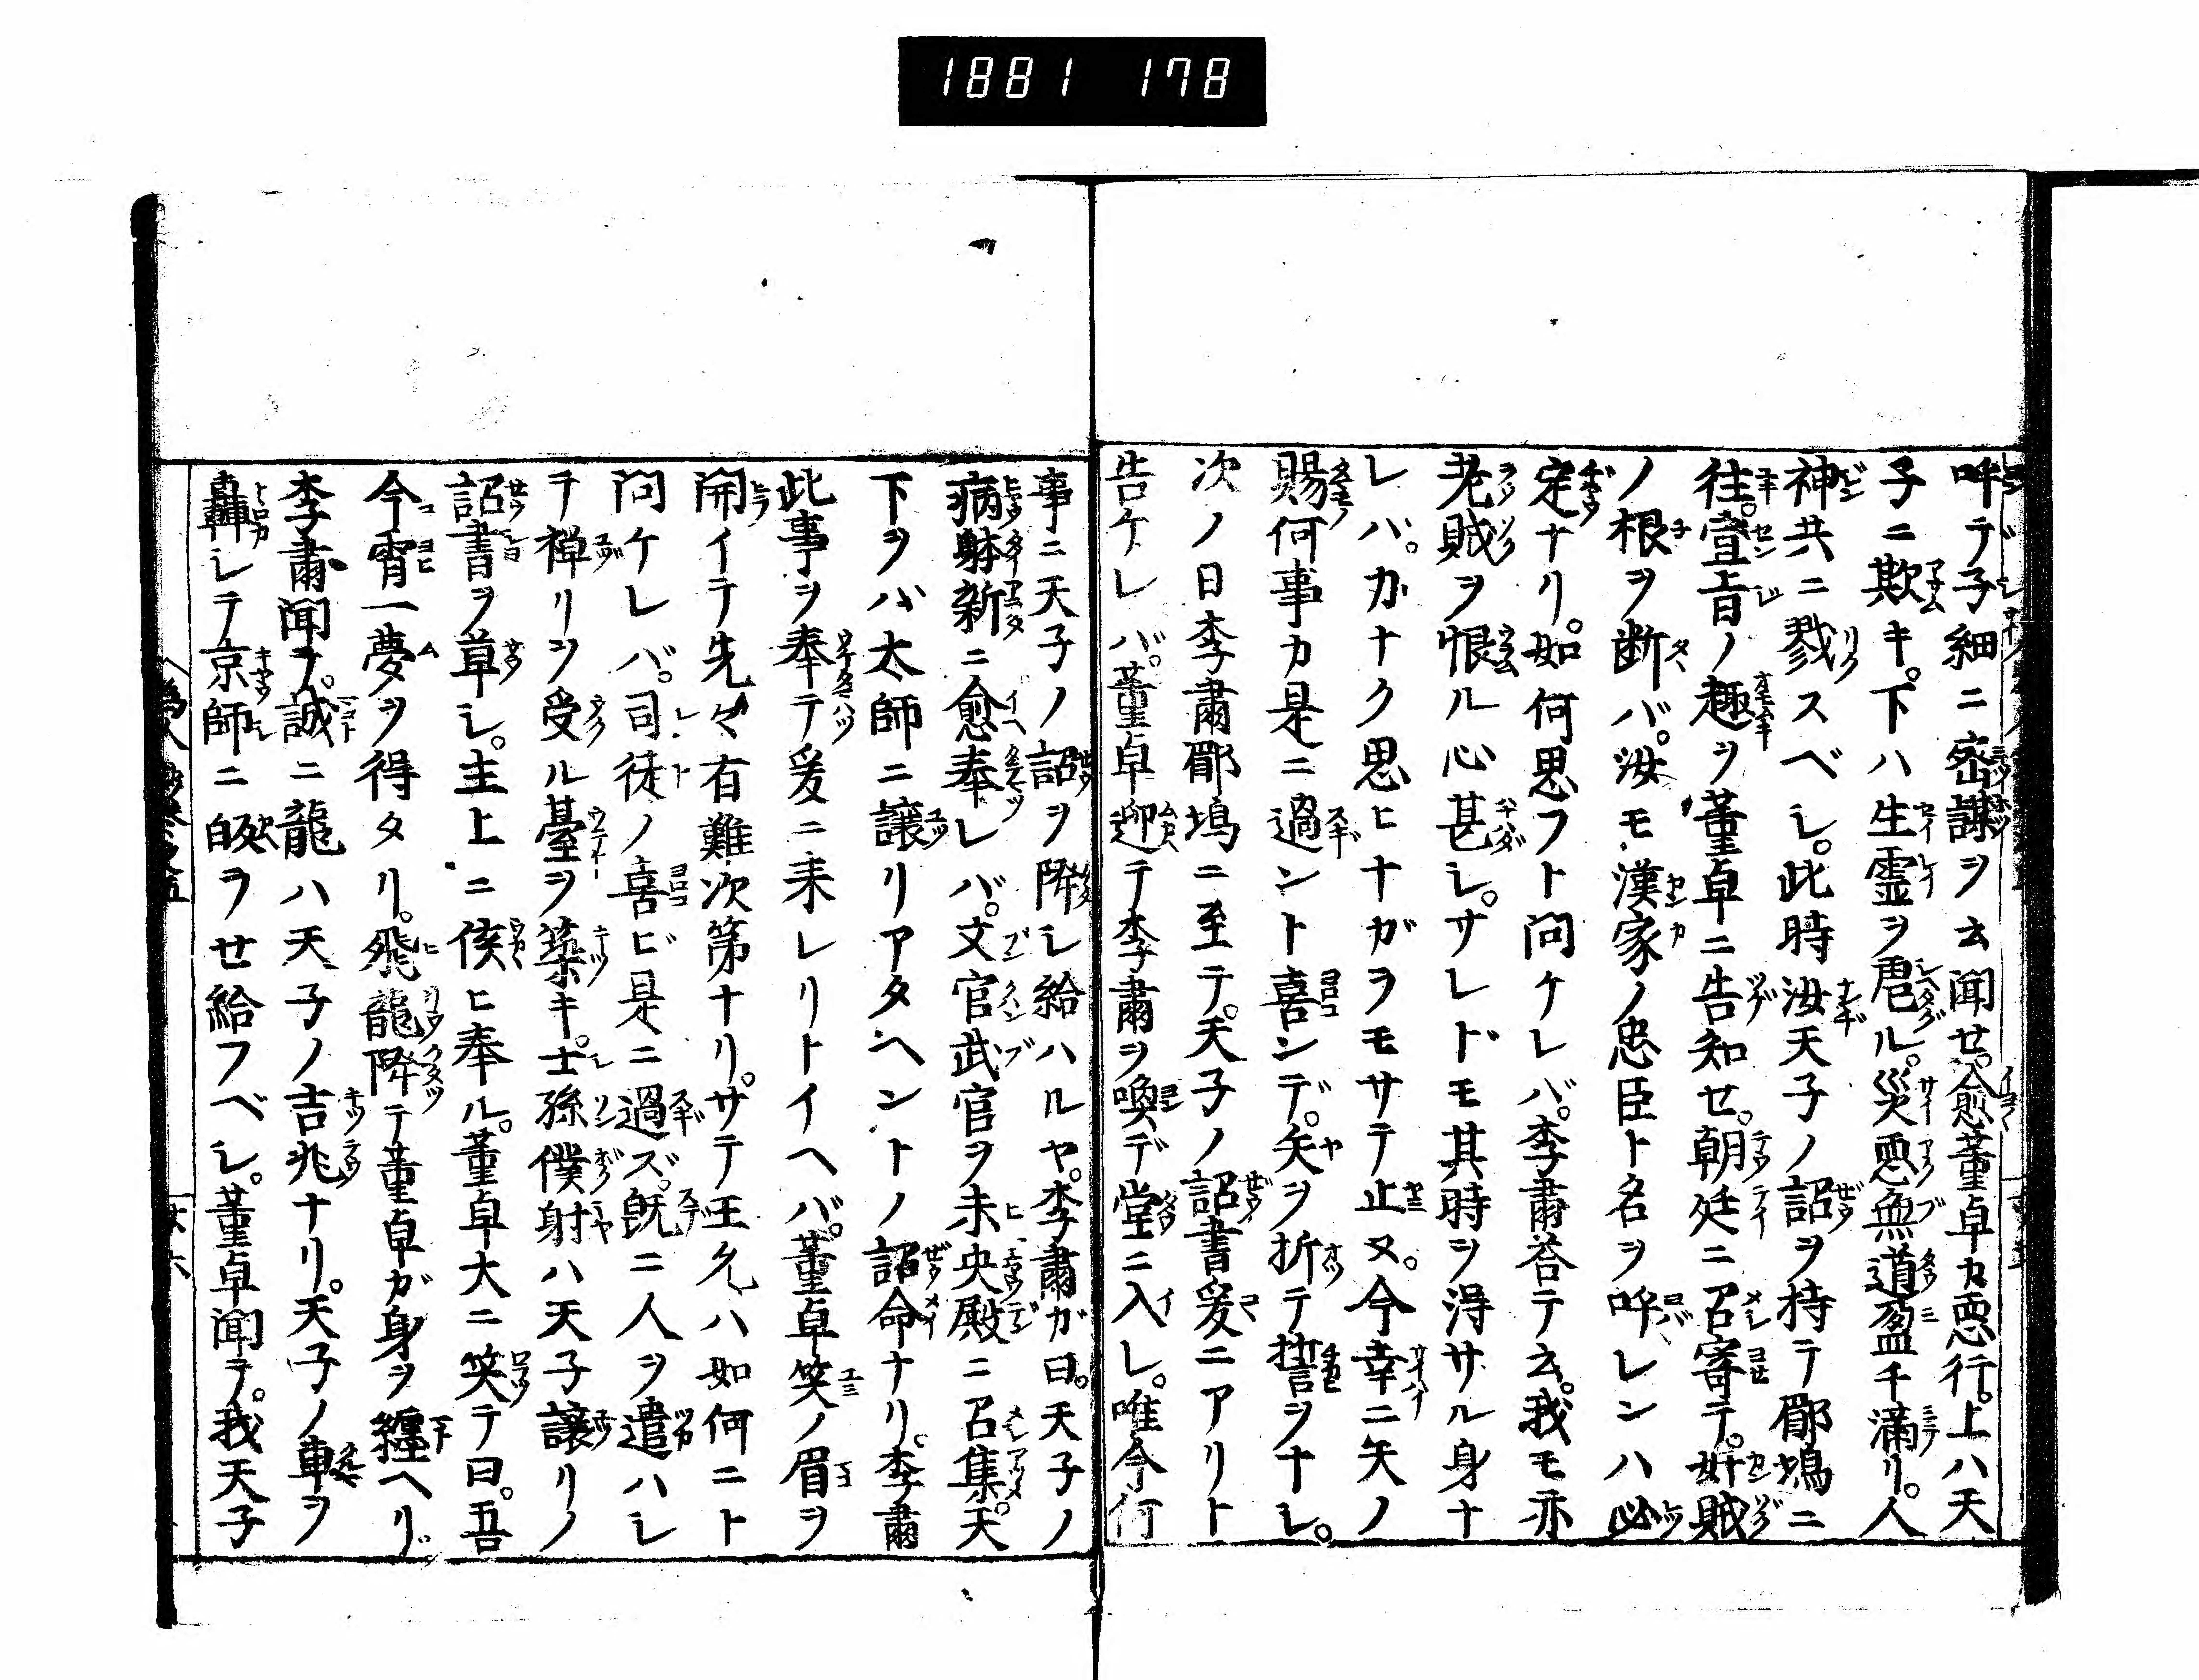 1881 178
呼デ子細ニ密謀ヲ云聞せ。愈董卓カ悪行。上ハ天
子ニ欺キ。下ハ生霊ヲ虐ル。災悪無道盈チ満リ。人
神共ニ戮スベレ。此時汝天子ノ詔ヲ持テ郿塢ニ
往。宣旨ノ趣ヲ董卓ニ告知せ。朝廷ニ召寄テ。奸賊
ノ根ヲ断バ。汝モ漢家ノ忠臣ト名ヲ呼レンハ必
定ナリ。如何思フト問ケレバ。李肅荅テ云。我モ亦
老賊ヲ恨ル心甚レ。サレドモ其時ヲ淂サル身ナ
レバ。カナク思ヒナガヲモサテ止ヌ。今幸ニ矢ノ
賜何事カ是ニ過ント喜ンデ。矢ヲ折テ誓ヲナレ。
次ノ日李肅郿塢ニ至テ。天子ノ詔書爰ニアリト
告ケレバ。董卓迎テ李肅ヲ喚デ堂ニ入レ。唯今何
事ニ天子ノ詔ヲ降レ給ハルヤ。李肅ガ曰。天子ノ
病躰新ニ愈奉レバ。文官武官ヲ未央殿ニ召集。天
下ヲバ太師ニ譲リアタヘントノ詔命ナリ。李肅
此事ヲ奉テ爰ニ来レリトイヘバ。董卓笑ノ眉ヲ
開イテ先々有難次第ナリ。サテ王允ハ如何ニト
問ケレバ。司徒ノ喜ビ是ニ過ズ。既ニ人ヲ遣ハレ
テ禅リヲ受ル臺ヲ築キ。士孫僕射ハ天子譲リノ
詔書ヲ草レ。主上ニ侯ヒ奉ル。董卓大ニ笑テ曰。吾
今宵一夢ヲ得タリ。飛龍降テ董卓ガ身ヲ纏ヘリ。
李肅聞テ。誠ニ龍ハ天子ノ吉兆ナリ。天子ノ車ヲ
轟レテ京師ニ皈ヲせ給フベレ。董卓聞テ。我天子